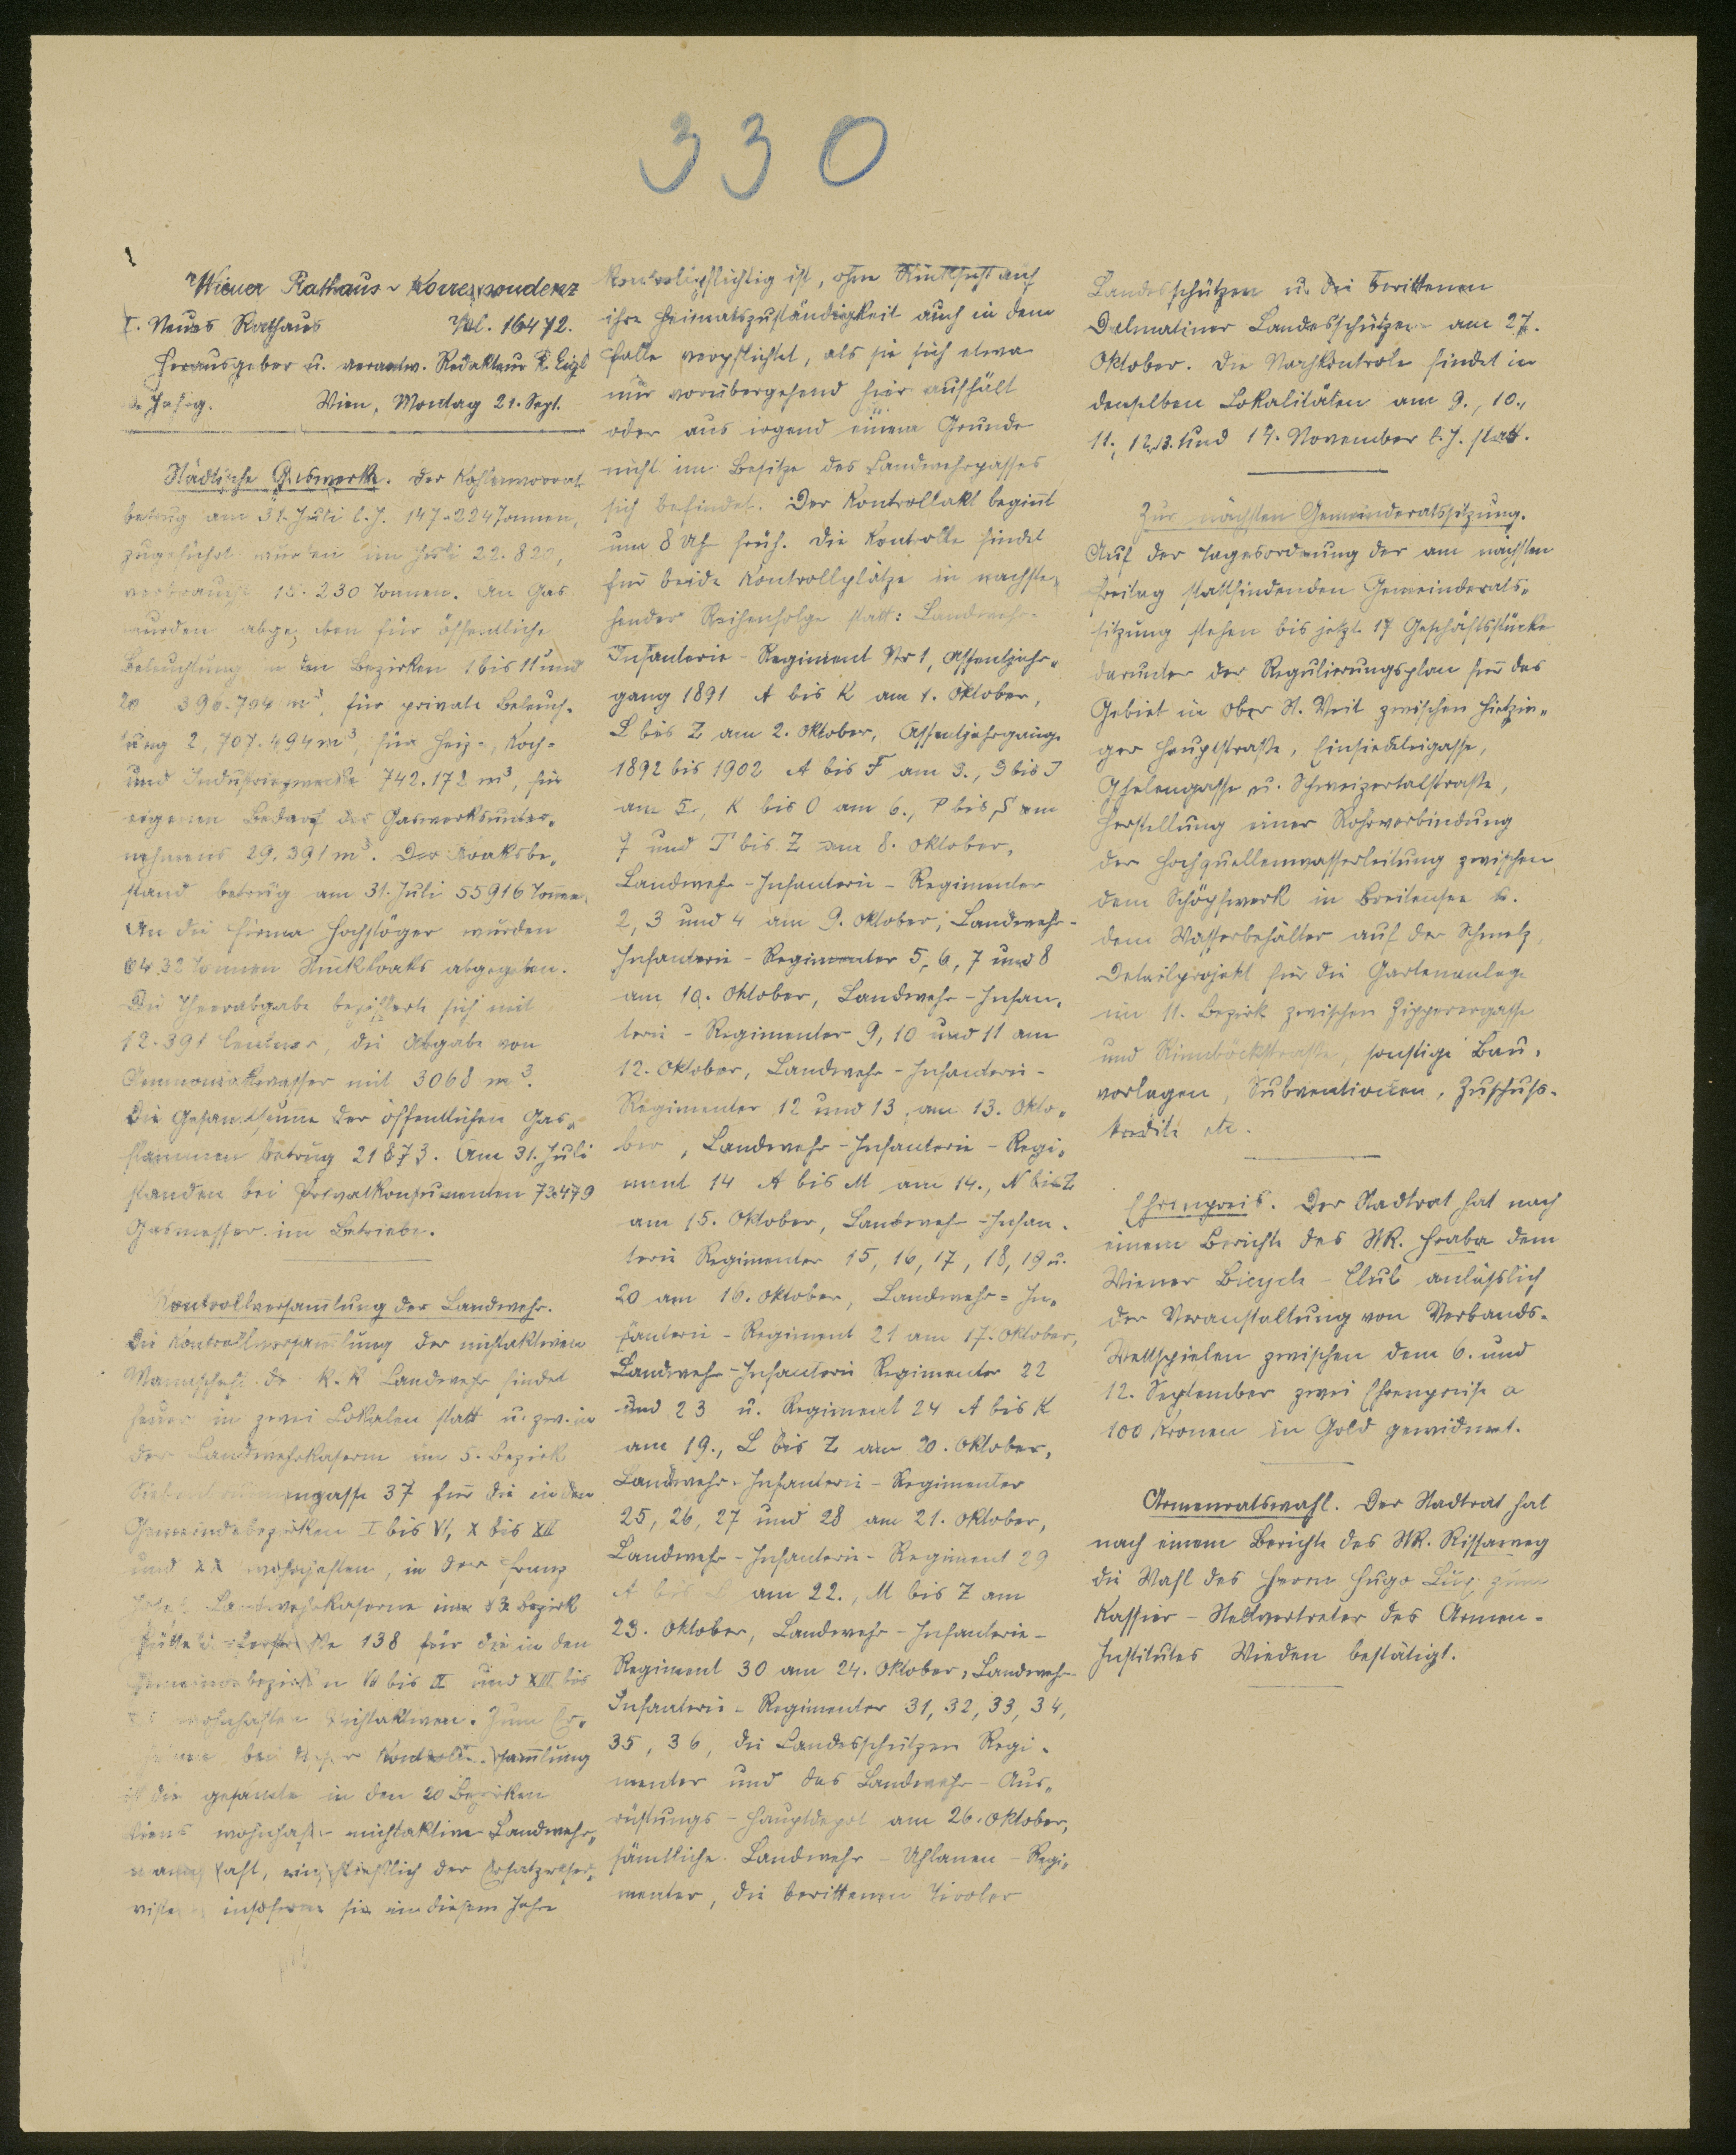 330
Wiener Rathaus-Korrespondenz
I. Neues Rathaus Tel. 16472.
Herausgeber u. verantw. Redakteur R. Eigl
Jahrg. Wien, Montag 21. Sept.
Städtische Gaswerke. Der Kohlenvorrat
betrug am 31. Juli l.J. 147.224 Tonnen,
zugeführt wurden im Juli 22.820,
verbraucht 15.230 Tonnen. An Gas
wurden abgegeben für öffentliche
Beleuchtung in den Bezirken 1 bis 11 und
20 m³, für private Beleuch-
tung 2,707.494 m³, für Heiz-, Koch-
und Industriezwecke 742.172 m³, für
eigenen Bedarf des Gaswerksunter-
nehmens 29.391 m³. Der Koaksbe-
stand betrug am 31. Juli 55916 Tonnen.
An die Firma Hochstöger wurden
6432 Tonnen Stückkoaks abgegeben.
Die Theerabgabe bezifferte sich mit
12.391 Centner, die Abgabe von
Ammoniakwasser mit 3068 m³.
Die Gesamtsumme der öffentlichen Gas-
flammen betrug 21873. Am 31. Juli
standen bei Privatkonsumenten 73479
Gasmesser im Betriebe.
Kontrollversam̅lung der Landwehr.
Die Kontrollversam̅lung der nichtaktiven
Mannschaft der k.k. Landwehr findet
heuer in zwei Lokalen statt u. zw. in
der Landwehrkaserne im 5. Bezirk
Siebenbrunnengasse 37 für die in den
Gemeindebezirken I bis VI, X bis XII
und XX wohnhaften, in der Franz
Josefs Landwehrkaserne im 13. Bezirk
Hütteldorferstraße 138 für die in den
Gemeindebezirken VII bis IX und XIII bis
wohnhaften Nichtaktiven. Zum Er-
scheinen bei dieser Kontrollversam̅lung
ist die gesamte in den 20 Bezirken
Wiens wohnhafte nichtaktive Landwehr-
mannschaft, einschließlich der Ersatzreser-
visten insoferne sie in diesem Jahre
kontrollpflichtig ist, ohne Rücksicht auf
ihre Heimatszuständigkeit auch in dem
Falle verpflichtet, als sie sich etwa
nur vorübergehend hier aufhält
oder aus irgend einem Grunde
nicht im Besitze des Landwehrpasses
sich befindet. Der Kontrollakt begin̅t
um 8 Uhr früh. Die Kontrolle findet
für beide Kontrollplätze in nachste-
hender Reihenfolge statt: Landwehr-
Infanterie-Regiment Nr 1, Assentjahr-
gang 1891 A bis K am 1. Oktober,
L bis Z am 2. Oktober, Assentjahrgänge
1892 bis 1902 A bis F am 3., G bis J
am 5., K bis O am 6., P bis S am
7 und T bis Z am 8. Oktober,
Landwehr-Infanterie-Regimenter
2, 3 und 4 am 9. Oktober, Landwehr-
Infanterie-Regimenter 5, 6, 7 und 8
am 10. Oktober, Landwehr-Infan-
terie-Regimenter 9, 10 und 11 am
12. Oktober, Landwehr-Infanterie-
Regimenter 12 und 13, am 13. Okto-
ber, Landwehr-Infanterie-Regi-
ment 14 A bis M am 14., N bis Z
am 15. Oktober, Landwehr-Infan-
terie Regimenter 15, 16, 17, 18, 19 u.
20 am 16. Oktober, Landwehr-In-
fanterie-Regiment 21 am 17. Oktober,
Landwehr-Infanterie Regimenter 22
und 23 u. Regiment 24 A bis K
am 19., L bis Z am 20. Oktober,
Landwehr-Infanterie-Regimenter
25, 26, 27 und 28 am 21. Oktober,
Landwehr-Infanterie-Regiment 29
A bis L am 22., M bis Z am
23. Oktober, Landwehr-Infanterie-
Regiment 30 am 24. Oktober, Landwehr-
Infanterie-Regimenter 31, 32, 33, 34,
35, 36, die Landesschützen Regi-
menter und das Landwehr-Aus-
rüstungs-Hauptdepot am 26. Oktober,
sämtliche Landwehr-Uhlanen-Regi-
menter, die berittenen Tiroler
Landesschützen u. die berittenen
Dalmatiner Landesschützen am 27.
Oktober. Die Nachkontrole findet in
denselben Lokalitäten am 9., 10.,
11., 12., 13. und 14. November l.J. statt.
Zur nächsten Gemeinderatssitzung.
Auf der Tagesordnung der am nächsten
Freitag stattfindenden Gemeinderats-
sitzung stehen bis jetzt 17 Geschäftsstücke
darunter der Regulierungsplan für das
Gebiet in Ober St. Veit zwischen Hietzin-
ger Hauptstraße, Einsiedeleigasse,
Ghelengasse u. Schweizertalstraße,
Herstellung einer Rohrverbindung
der Hochquellenwasserleitung zwischen
dem Schöpfwerk in Breitensee u.
dem Wasserbehälter auf der Schmelz,
Detailprojekt für die Gartenanlage
im 11. Bezirk zwischen Zipperergasse
und Rinnböckstraße, sonstige Bau-
vorlagen, Subventionen, Zuschuss-
kredite etc.
Ehrenpreis. Der Stadtrat hat nach
einem Berichte des StR. Hraba dem
Wiener Bicycle-Club anlässlich
der Veranstaltung von Verbands-
Wettspielen zwischen dem 6. und
12. September zwei Ehrenpreise a
100 Kronen in Gold gewidmet.
Armenratswahl. Der Stadtrat hat
nach einem Berichte des StR. Rissaweg
die Wahl des Herrn Hugo Lux zum
Kassier-Stellvertreter des Armen-
Institutes Wieden bestätigt.